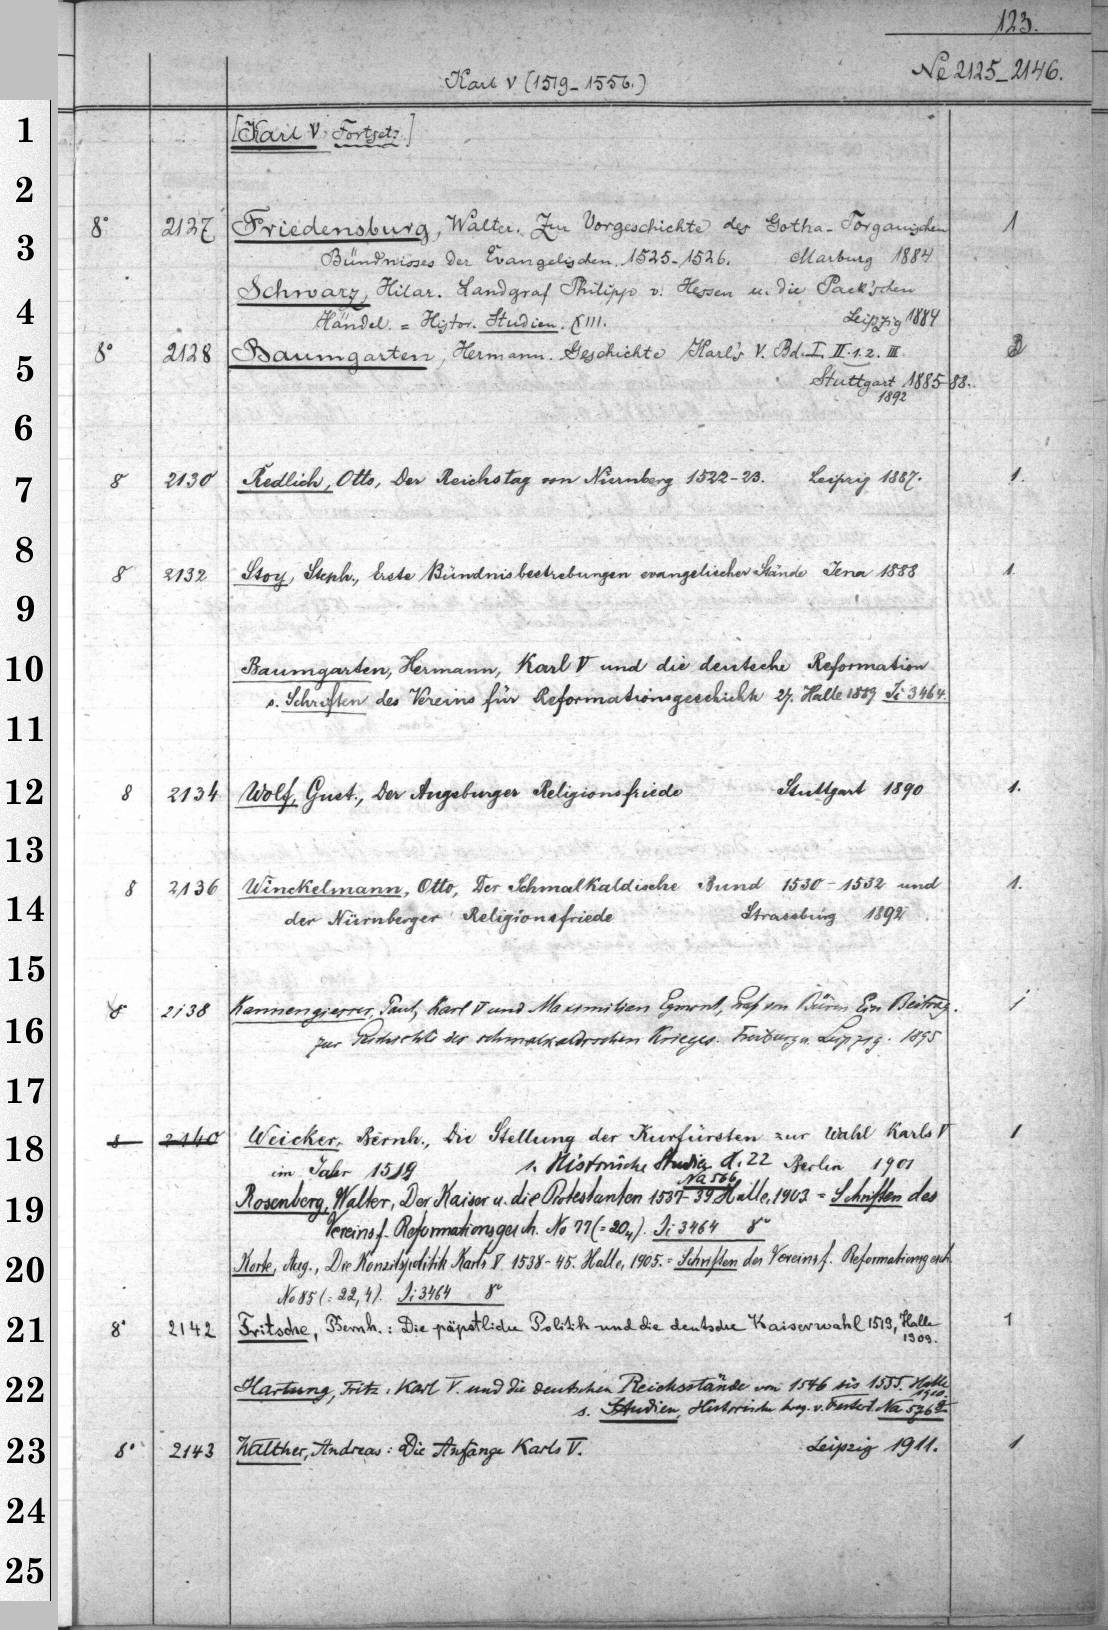 123.
Ne 2125_2146.
Karl V (1519_1556.)
1 [Karl V. Fortsetz.]
2
8° 2127 Friedensburg, Walter. Zur Vorgeschichte des Gotha-Torgauischen 1
3 Bündnisses der Evangelischen. 1525-1526. Marburg 1884
Schwarz, Hilar. Landgraf Philipp v. Hessen u. die Pack'schen
4 Händel. = Histor. Studien. XIII. Leipzig 1884
8° 2128 Baumgarten, Hermann. Geschichte Karl's V. Bd. I. II.1.2. III. 3
5 Stuttgart 1885-88.
1892
6
7 8 2130 Redlich, Otto, Der Reichstag von Nürnberg 1522-23. Leipzig 1887. 1.
8
8 2132 Stoy, Steph., Erste Bündnisbestrebungen evangelischer Stände Jena 1888 1.
9
10 Baumgarten, Hermann, Karl V und die deutsche Reformation
s. Schriften des Vereins für Reformationsgeschichte 27. Halle 1889 Ji 3464.
11
12 8 2134 Wolf, Gust., Der Augsburger Religionsfriede Stuttgart 1890 1.
13
8 2136 Winckelmann, Otto, Der Schmalkaldische Bund 1530-1532 und 1.
14 der Nürnberger Religionsfriede Strassburg 1892
15
8 2138 Kannengiesser, Paul, Karl V und Maximilian Egmont, Graf von Büren Ein Beitrag. 1
16 zur Geschichte des schmalkaldischen Krieges. Freiburg u. Leipzig. 1895
17
18 8 2140 Weicker, Bernh., Die Stellung der Kurfürsten zur Wahl Karls V 1
im Jahr 1519 s. Historische Studien d. 22 Berlin 1901
Na 566
19 Rosenberg, Walter, Der Kaiser u. die Protestanten 1537-39 Halle, 1903 = Schriften des
Vereins f. Reformationsgesch. No 77 (=20,4). Ji 3464 8°
20 Korte, Aug., Die Konzilspolitik Karls V. 1538-45. Halle, 1905. = Schriften des Vereins f. Reformationsgesch.
No 85 (=22,4). Ji 3464 8°
21 8° 2142 Fritsche, Bernh.: Die päpstliche Politik und die deutsche Kaiserwahl 1519, Halle 1
1909.
22 Hartung, Fritz: Karl V. und die deutschen Reichsstände von 1546 bis 1555. Halle
1910.
s. Studien, Historische hrsg. v.
23 8° 2143 Walther, Andreas: Die Anfänge Karls V. Leipzig 1911. 1
24
25